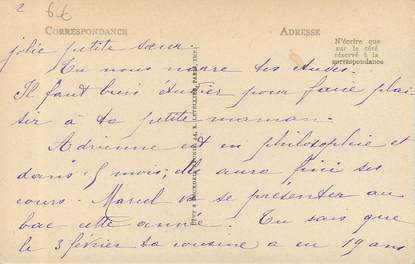 2
6€
CORRESPONDANCE
ADRESSE
N'écrire que
sur le côté
réservé à la
correspondance
jolie petite sœur.
Tu nous narre tes études.
Il faut bien étudier pour faire plai
sir à ta petite maman.
Adrienne est en philosophie et
dans 5 mois, elle aura fini ses
cours. Marcel va se présenter au
bac cette année. Tu sais que
le 3 février ta cousine a eu 19 ans
LÉVY & NEURDEIN RÉUNIS, 44, R. LETELLIER, PARIS, IMP.